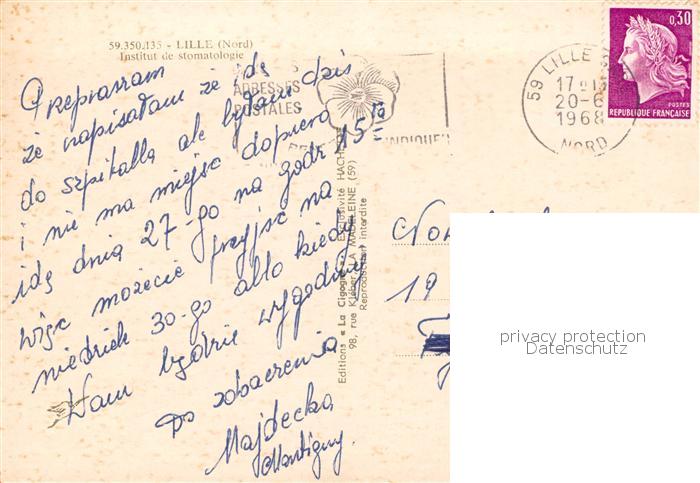 59.350.135 - LILLE (Nord)
Institut de stomatologie
Przepraszam
że napisałam że idę
do szpitala ale byłam dziś
i nie ma miejsc dopiero
idę dnia 27-go na godz 15 tą
więc możecie przyjść na
niedziele 30-go albo kiedy
Wam będzie wygodniej
Do zobaczenia
Majdecka
Montigny.
ADRESSES
POSTALES
INDIQUE
Editions « La Cigogne » Exclusivité HACH
98, rue Kléber, LA MADELEINE (59)
Reproduction interdite
59 LILLE
17 H
20-6
1968
NORD
0,30
POSTES
REPUBLIQUE FRANÇAISE
19
privacy protection
Datenschutz